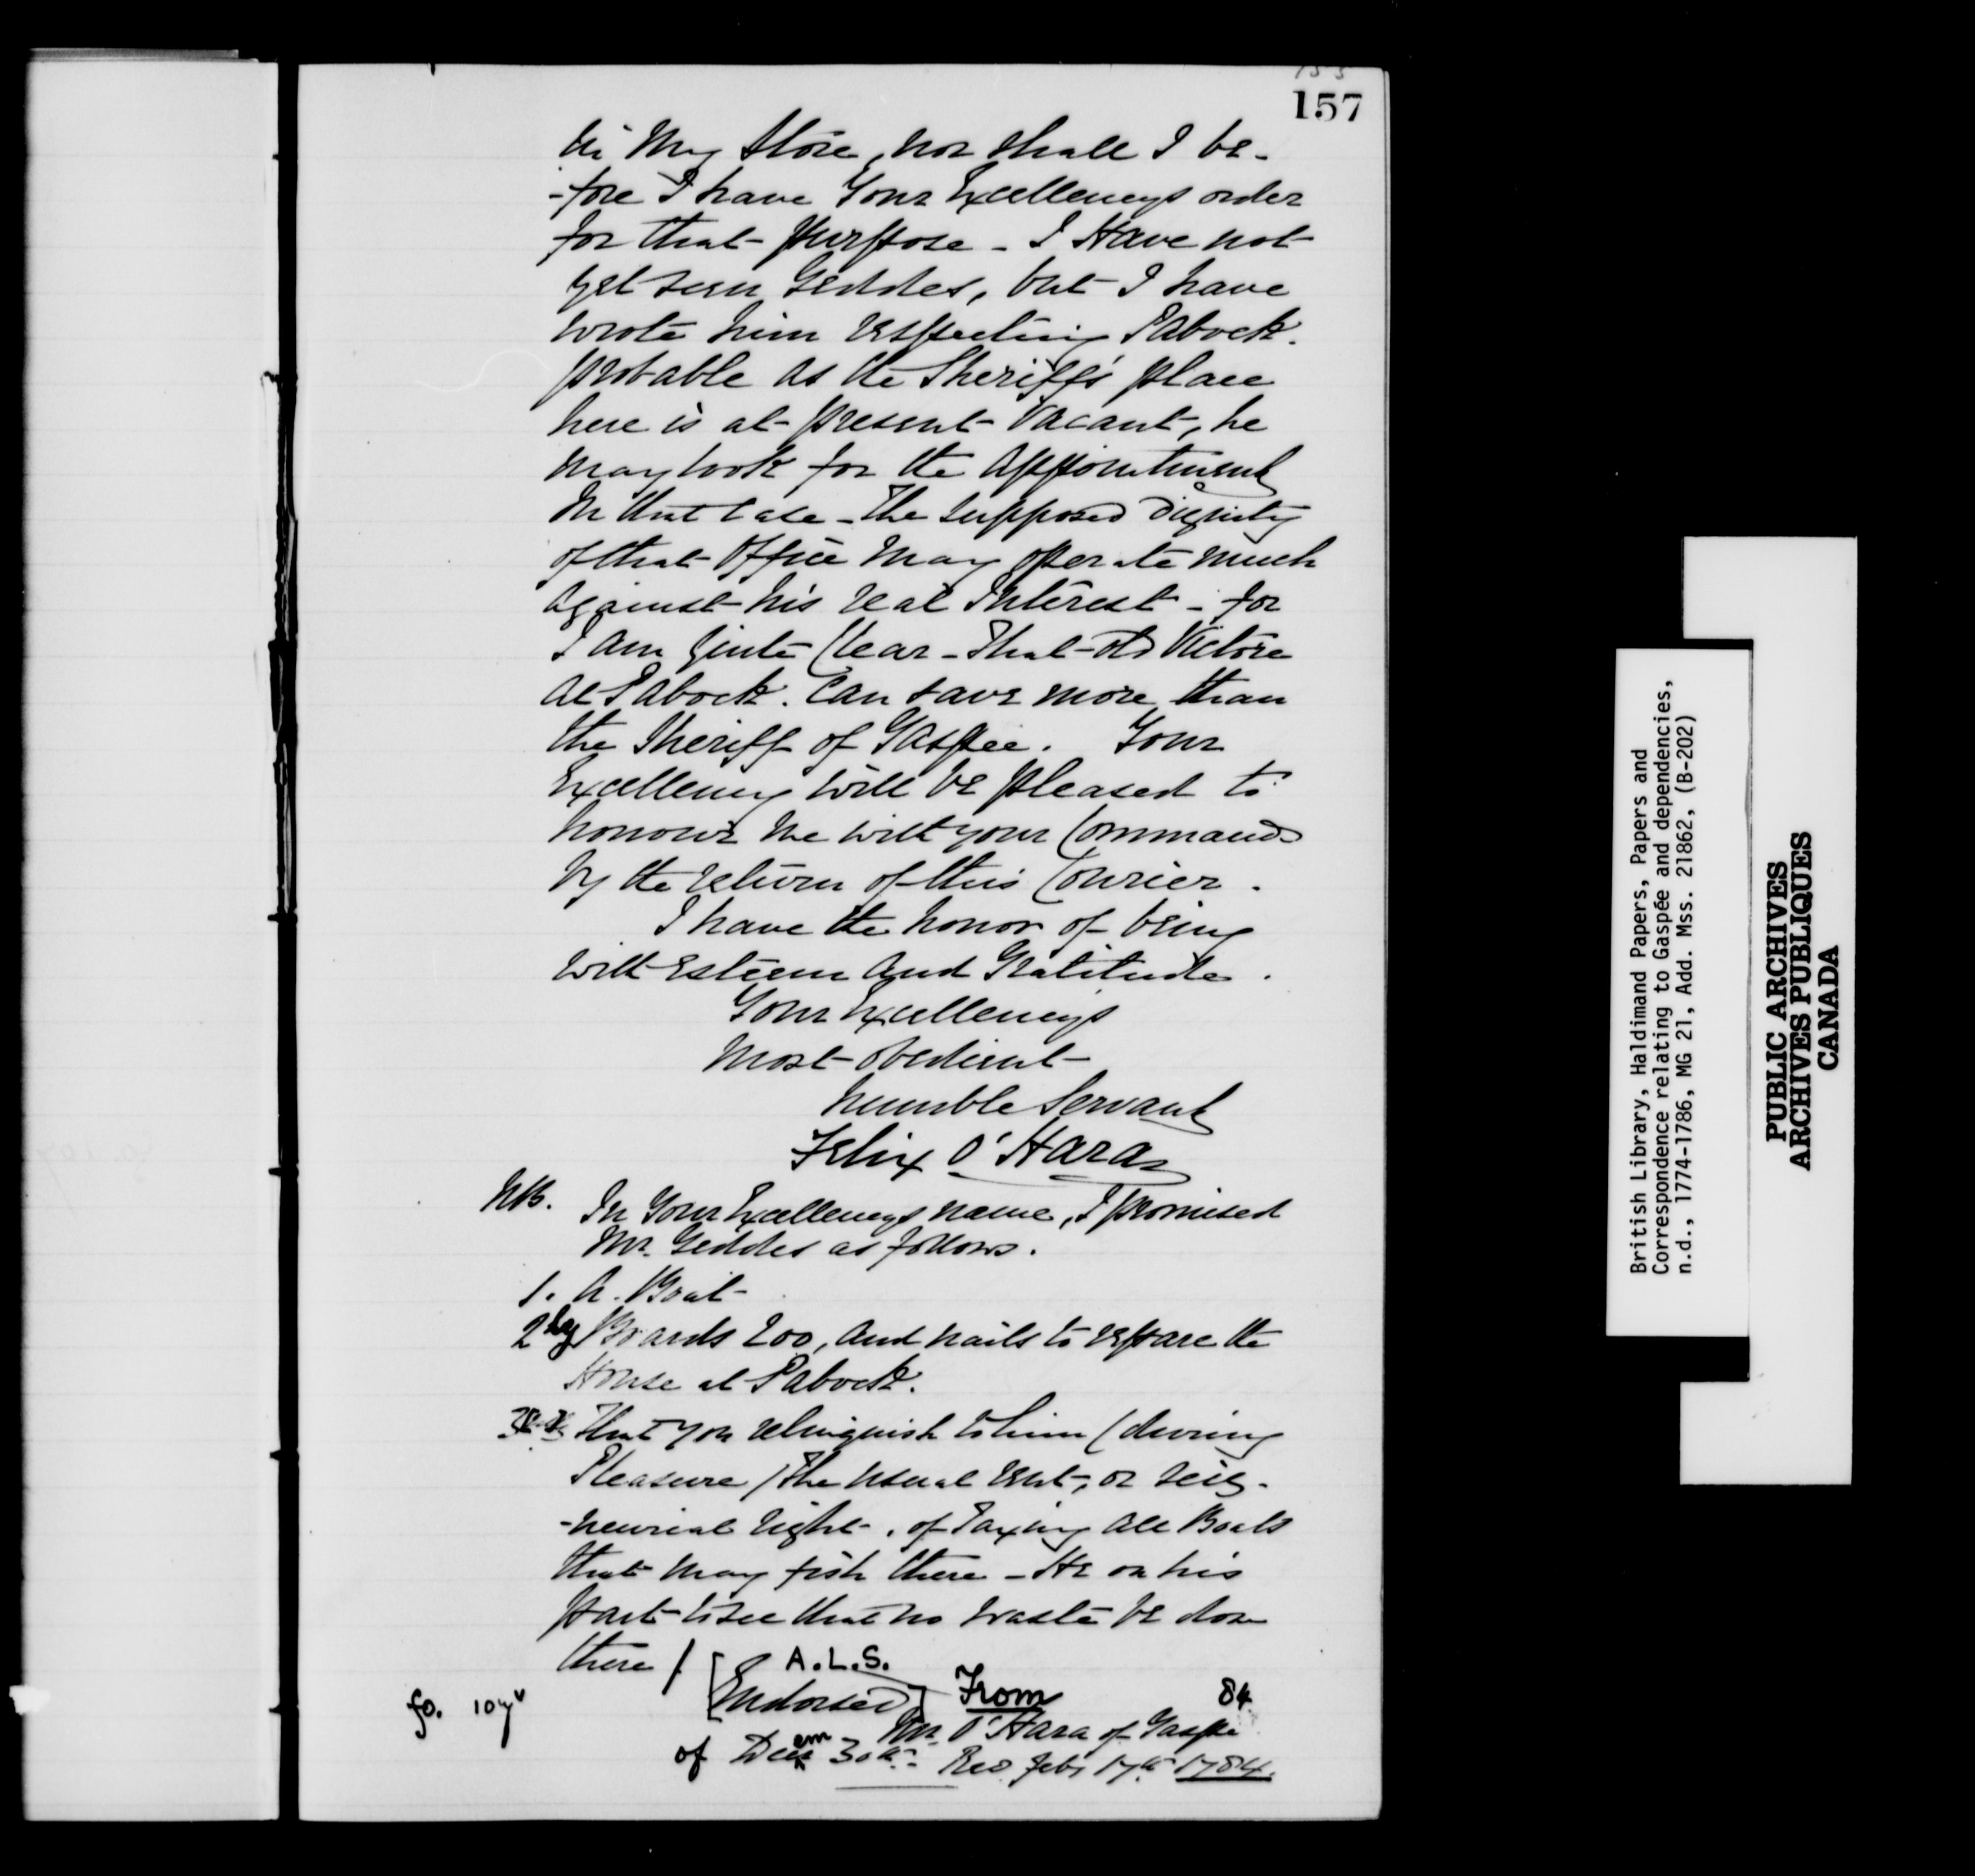 155
157
in My Store, nor shall I be-
-fore I have Your Excellencys order
for that purpose - I Have not
yet seen Geddes, but I have
wrote him respecting Pabock.
probable as the Sheriffs' place
here is at present vacant, he
may look for the appointment
In that Case - the supposed Dignity
of that Office May operate much
against his real Interest - for
I am quite Clear - that old Victore
at Pabock. Can save more than
the Sheriff of Gaspee. Your
Excellency will be pleased to
honour me with your Commands
by the return of this Courier.
I have the honor of being
with Esteem and Gratitude.
Your Excellencys
Most obedient
humble Servant
Felix O'Hara
NB. In Your Excellencys name, I promised
Mr. Geddes as follows.
1. A. Boat
2ly Boards 200, and nails to repare the
House at Pabock.
That you relinquish to him (during
Pleasure) the usual rent, or seig-
-neurial right, of Taxing all Boats
that may fish there - He on his
part to see that no waste be done
there/ [A.L.S.
Endorsed] From 84
Mr. O'Hara of Gaspe
of Decem 30th. Recd Feby 17th 1784.
fo. 104v
British Library, Haldimand Papers, Papers and
Correspondence relating to Gaspée and dependencies,
n.d., 1774-1786, MG 21, Add. Mss. 21862, (B-202)
PUBLIC ARCHIVES
ARCHIVES PUBLIQUES
CANADA